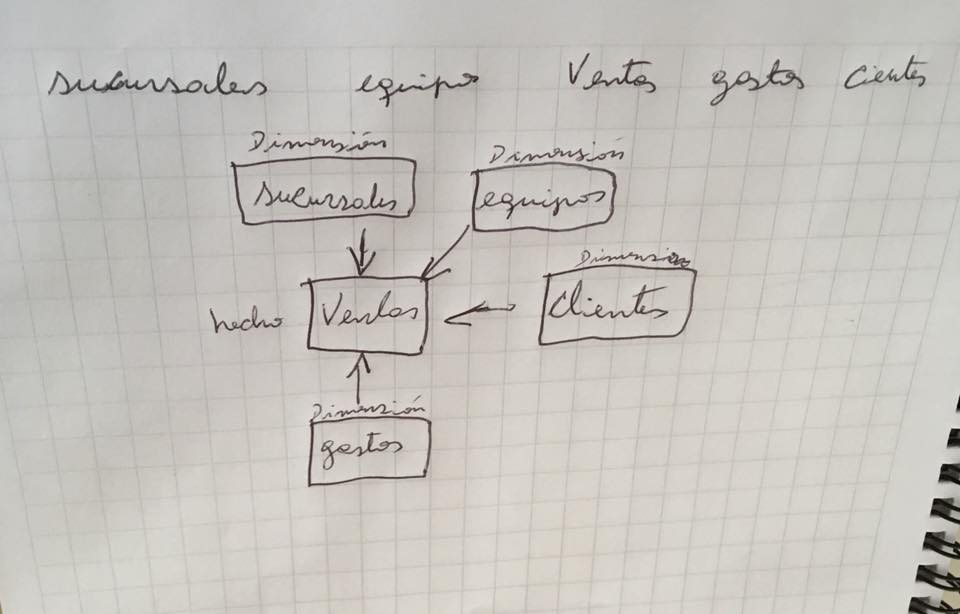 sucursales equipo Ventas gastos cientes
Dimensión
sucursales
Dimensión
equipos
Dimension
Clientes
hecho
Ventas
Dimensión
gastos